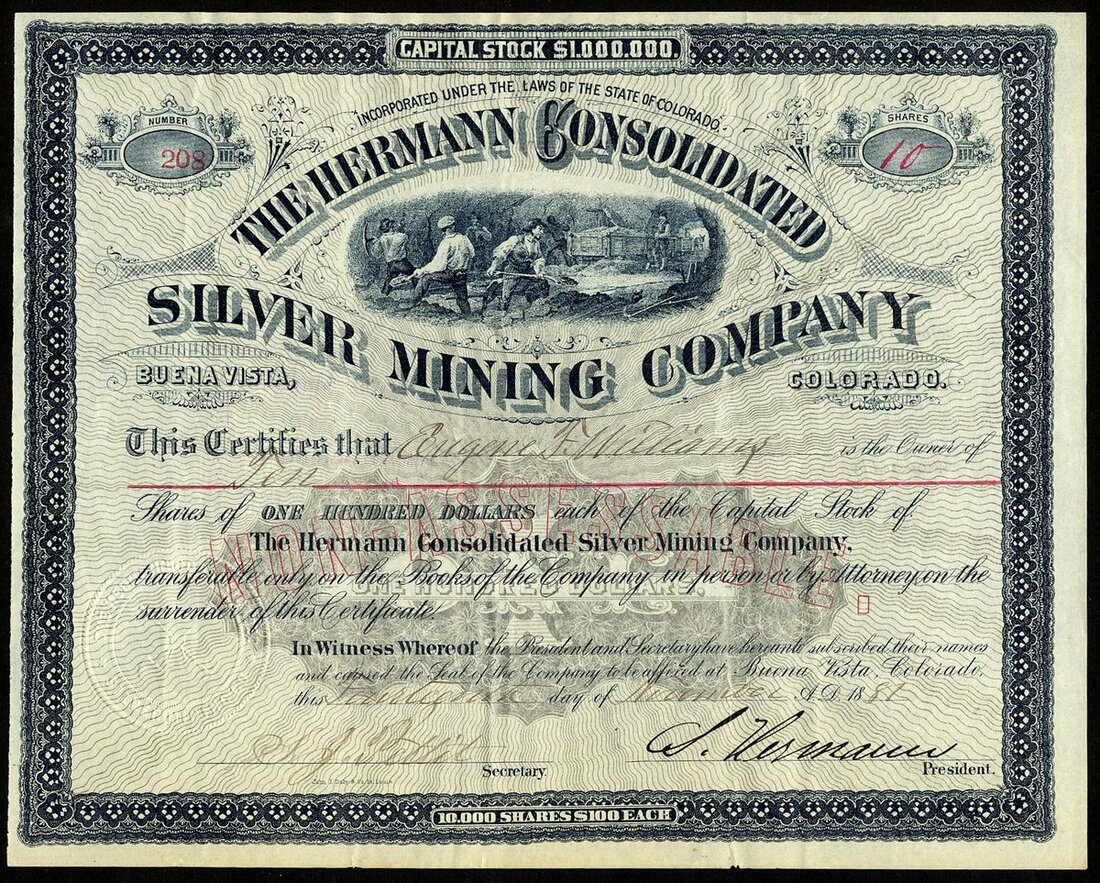 CAPITAL STOCK $1.000.000.
INCORPORATED UNDER THE LAWS OF THE STATE OF COLORADO
NUMBER
208
SHARES
10
THE HERMANN CONSOLIDATED
SILVER MINING COMPANY
BUENA VISTA,
COLORADO.
This Certifies that Eugene F. Williams is the Owner of
Ten
Shares of ONE HUNDRED DOLLARS each of the Capital Stock of
NON-ASSESSABLE.
The Hermann Consolidated Silver Mining Company,
transferable only on the Books of the Company in person or by Attorney on the
ONE HUNDRED DOLLARS.
surrender of this Certificate.
In Witness Whereof the President and Secretary have hereunto subscribed their names
and caused the Seal of the Company to be affixed at Buena Vista, Colorado,
this day of November A.D. 1881
S. Hermann
Secretary.
President.
10.000 SHARES $100 EACH